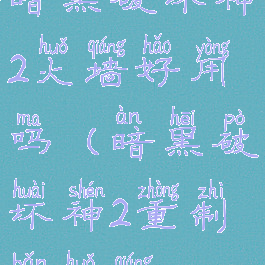 暗黑破坏神
huǒ qiáng hǎo yòng
2火墙好用
ma àn hēi pò
吗(暗黑破
huài shén zhòng zhì
坏神2重制
bǎn huǒ qiáng